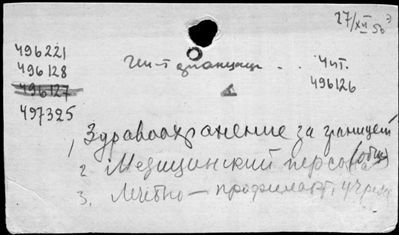 27/XII 50
496221
496128
496127
497325
Чит.
496126
1, Здравоохранение за границей
(общ)
2 Медицинский персонал
3. Лечебно - профилакт. учреж